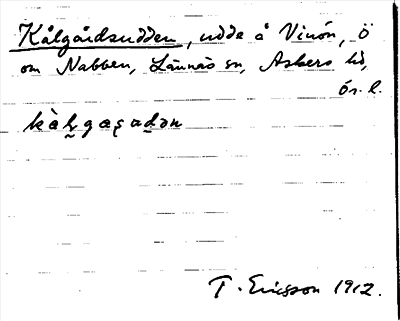 Kålgårdsudden, udde å Vinön, Ö
om Nabben, Lännäs sn, Askers hd,
Ör. l.
T. Ericsson 1912.